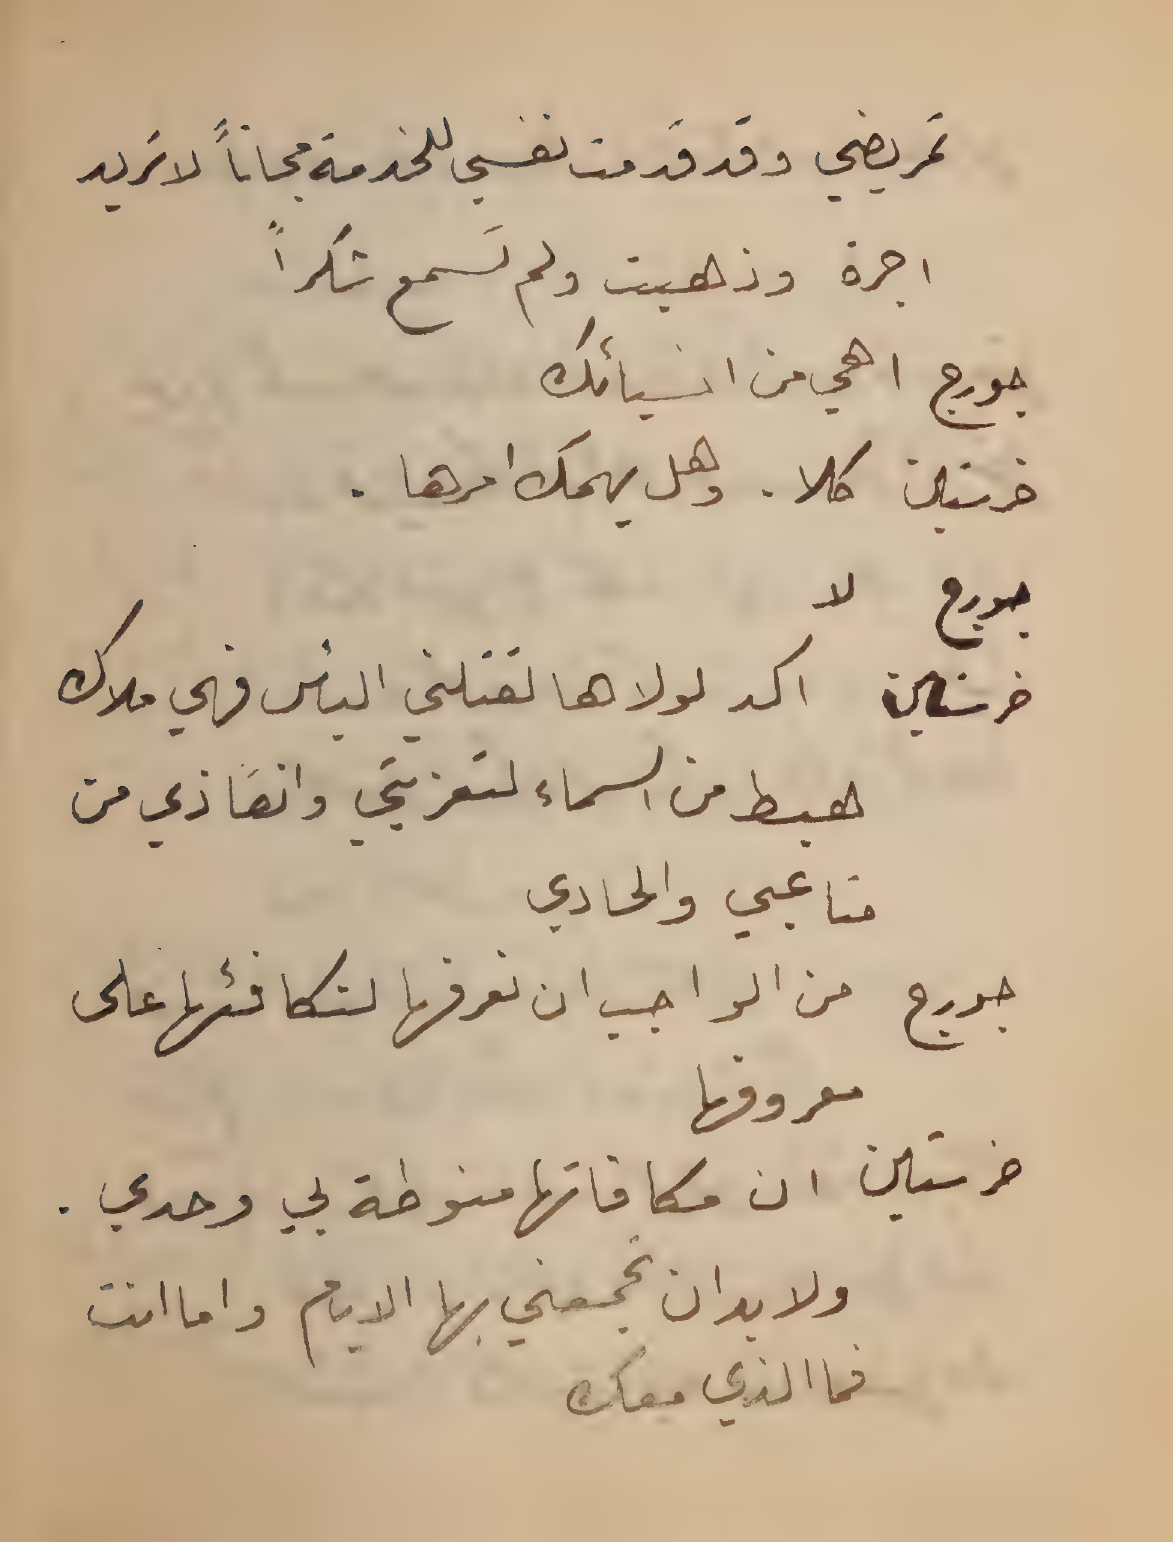 تمريضي وقد قدمت نفسي للخدمة مجاناً لا تريد
اجرة وذهبت ولم تسمع شكراً
جورج اهي من انسيائك
خرستين كلا . وهل يهمك امرها .
جورج لا
خرستين اكد لولاها لقتلني اليأس فهي ملاك
هبط من السماء لتعزيتي وانقاذي من
متاعبي والحادي
جورج من الواجب ان نعرفها لتكافئها على
معروفها
خرستين ان مكافاتها منوطة بي وحدي .
ولا بد ان تجمعني بها الايام واما انت
فما الذي معك